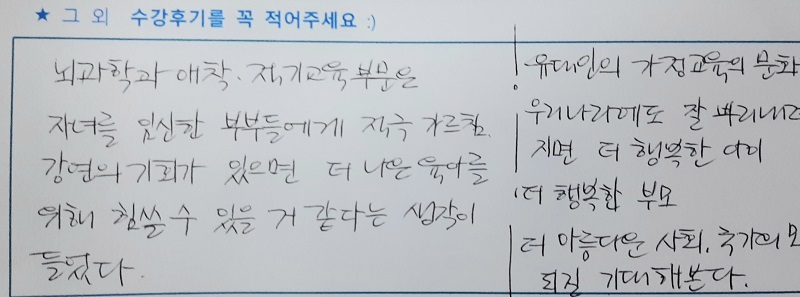 ★ 그 외 수강후기를 꼭 적어주세요 :)
뇌과학과 애착. 적기교육 부문은
자녀를 임신한 부부들에게 적극 가르침.
강연의 기회가 있으면 더 나은 육아를
위해 힘쓸 수 있을 거 같다는 생각이
들었다.
유대인의 가정교육의 문화
우리나라에도 잘 뿌리내려
지면 더 행복한 아이
더 행복한 부모
더 아름다운 사회. 국가의 모
되길 기대해본다.